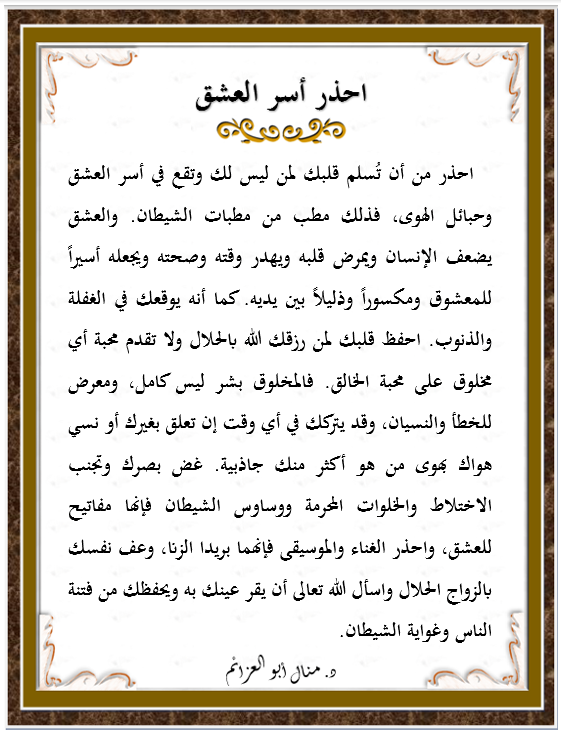 احذر أسر العشق
احذر من أن تُسلم قلبك لمن ليس لك وتقع في أسر العشق
وحبائل الهوى، فذلك مطب من مطبات الشيطان. والعشق
يضعف الإنسان ويمرض قلبه ويهدر وقته وصحته ويجعله أسيراً
للمعشوق ومكسوراً وذليلاً بين يديه. كما أنه يوقعك في الغفلة
والذنوب. احفظ قلبك لمن رزقك الله بالحلال ولا تقدم محبة أي
مخلوق على محبة الخالق. فالمخلوق بشر ليس كامل، ومعرض
للخطأ والنسيان، وقد يتركك في أي وقت إن تعلق بغيرك أو نسي
هواك بهوى من هو أكثر منك جاذبية. غض بصرك وتجنب
الاختلاط والخلوات المحرمة ووساوس الشيطان فإنها مفاتيح
للعشق، واحذر الغناء والموسيقى فإنهما بريدا الزنا، وعف نفسك
بالزواج الحلال واسأل الله تعالى أن يقر عينك به ويحفظك من فتنة
الناس وغواية الشيطان.
د. منال أبو العزائم